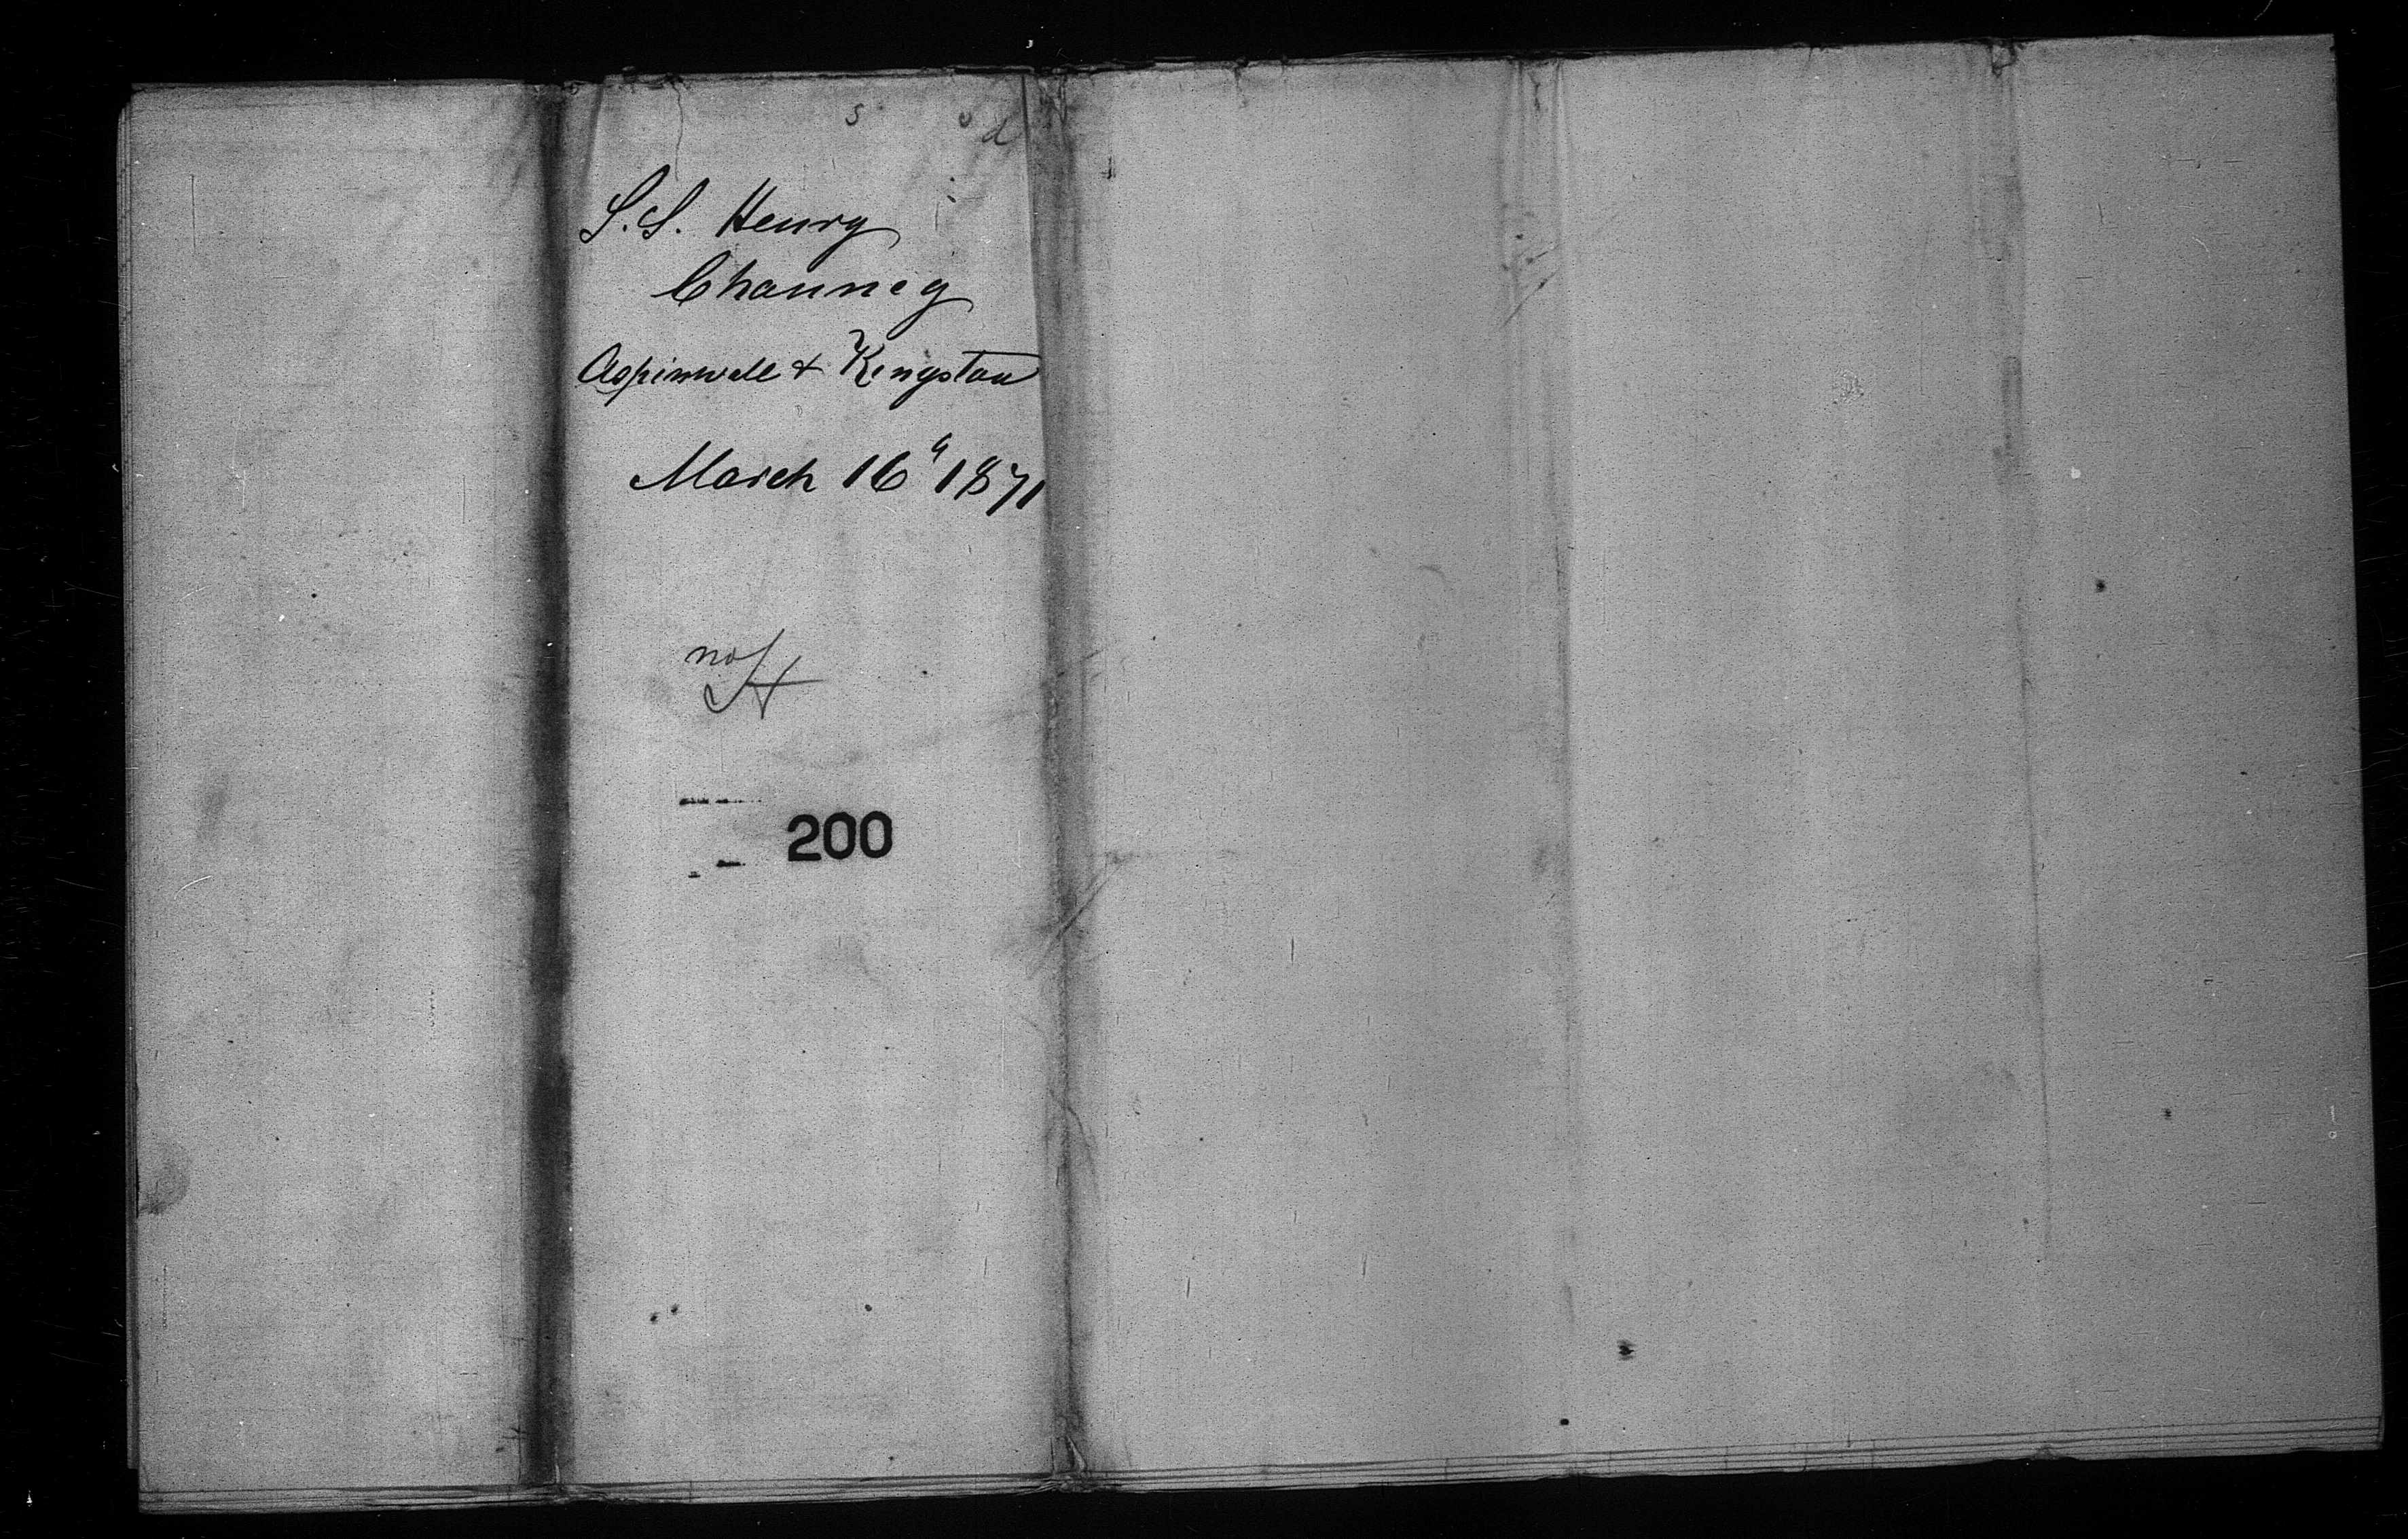 S.S. Henry
Chauncey
Aspinwall & Kingston
March 16" 1871
no
200